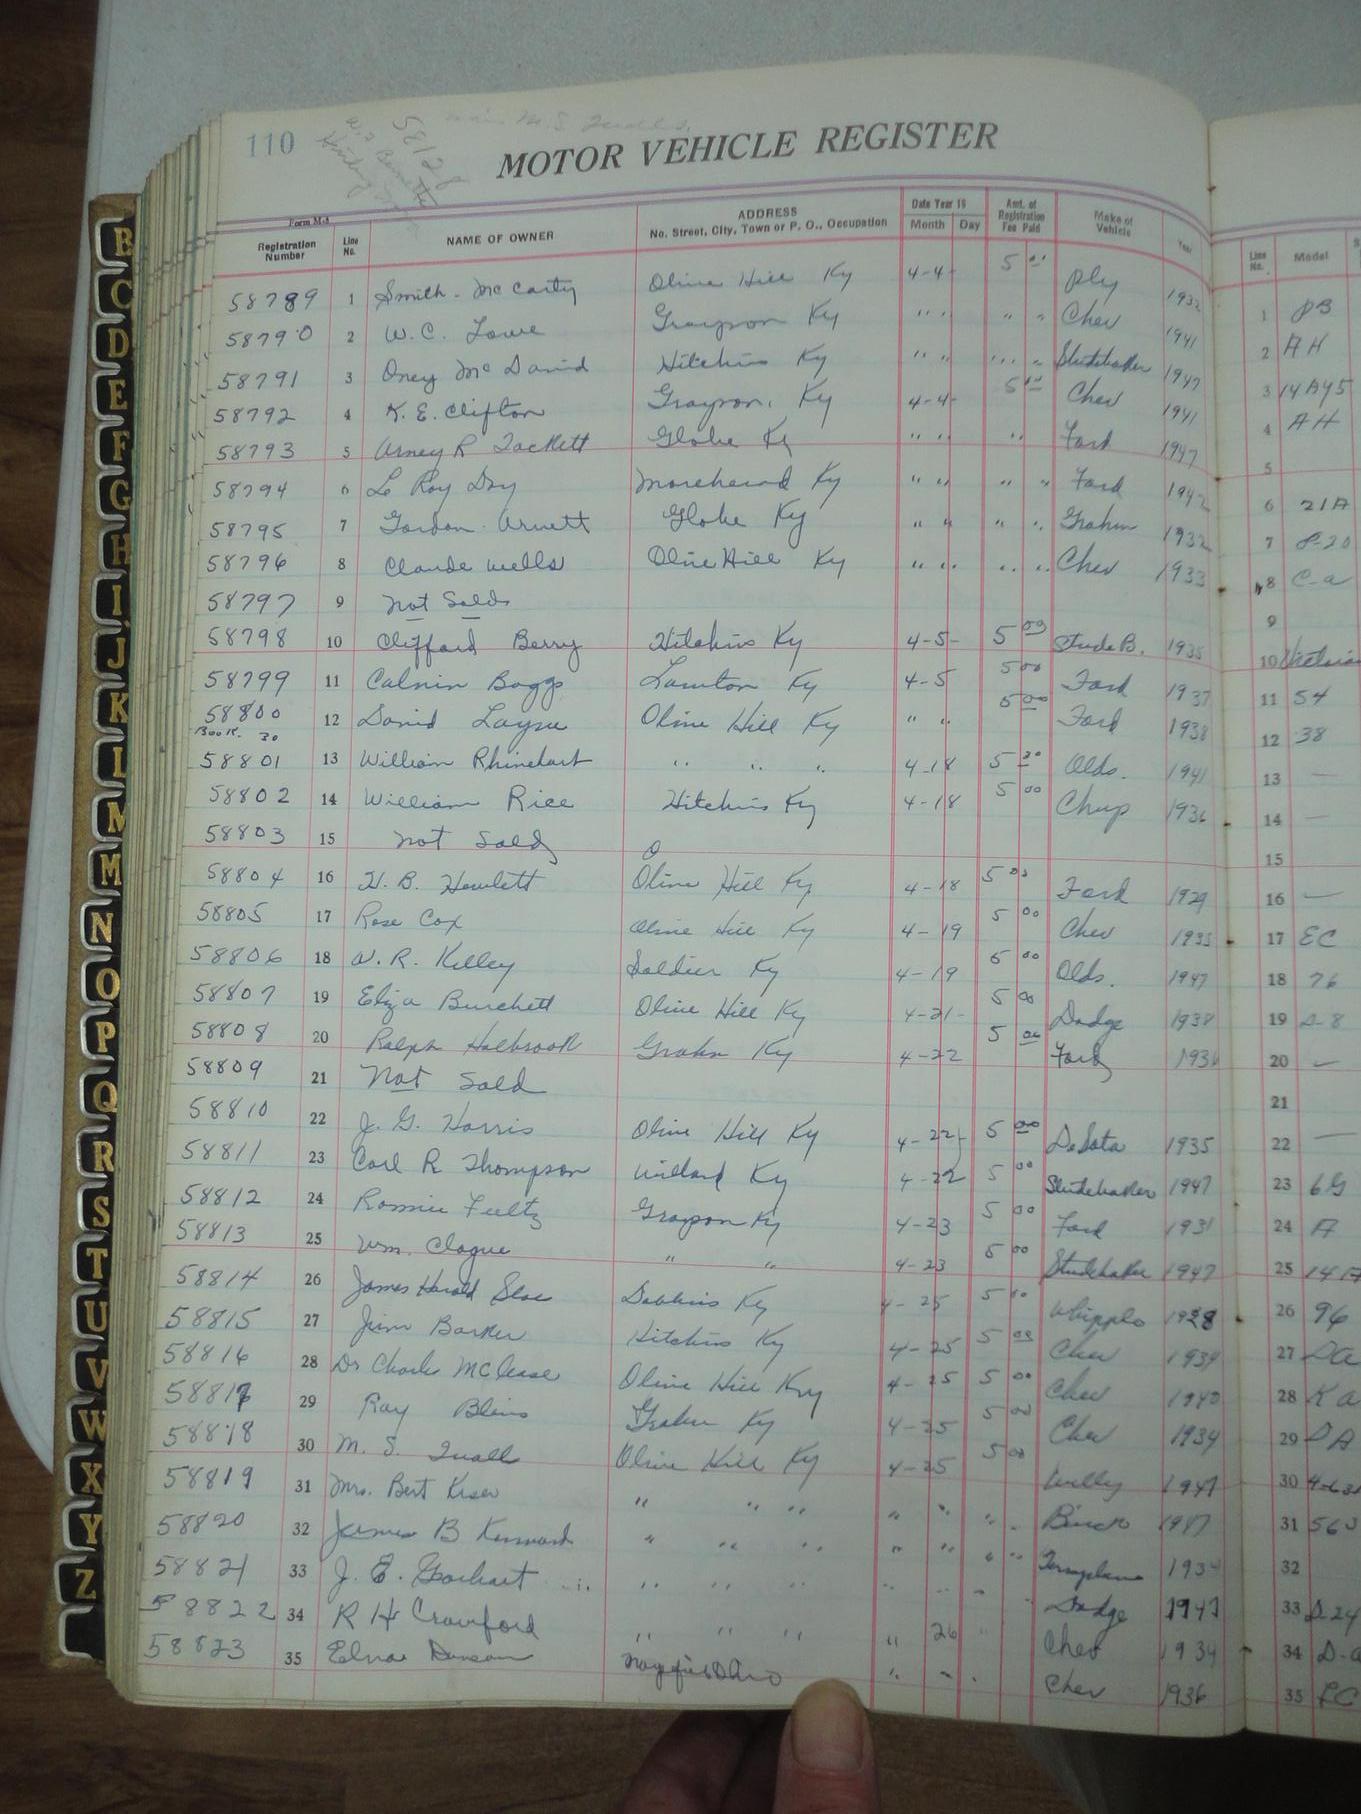 110
5812
MOTOR VEHICLE REGISTER
Form M-4
Registration Number Line No. NAME OF OWNER ADDRESS No. Street, City, Town or P. O., Occupation Date Year 19 Month Day Amt. of Registration Fee Paid Make of Vehicle Year Line No. Model
58789 1 Smith - McCarty Olive Hill Ky 4-4- 5 00 Ply 1932 1 PB
58790 2 W.C. Lowe Grayson Ky " " " " Chev 1941 2 AH
58791 3 Oney McDavid Hitchins Ky " " " " Studebaker 1947 3 14A45
58792 4 K.E. Clifton Grayson, Ky 4-4- 5 00 Chev 1941 4 AH
58793 5 Arney R Tackett Globe Ky " " " Ford 1947 5
58794 6 Le Roy Day Morehead Ky " " " " Ford 1942 6 21A
58795 7 Gordon Arnett Globe Ky " " " " Graham 1932 7 8-20
58796 8 Claude Wells Olive Hill Ky " " " " Chev 1933 8 C-a
58797 9 Not Sold 9
58798 10 Clifford Berry Hitchins Ky 4-5- 5 00 Stude B. 1935 10
58799 11 Calvin Boggs Lawton Ky 4-5 5 00 Ford 1937 11 54
58800 12 David Layne Olive Hill Ky " " 5 00 Ford 1938 12 38
Book 30
58801 13 William Rhinehart " " " 4-18 5 00 Olds. 1941 13 —
58802 14 William Rice Hitchins Ky 4-18 5 00 1936 14 —
58803 15 Not Sold 15
58804 16 H. B. Howlett Olive Hill Ky 4-18 5 00 Ford 1929 16 —
58805 17 Rose Cox Olive Hill Ky 4-19 5 00 Chev 1935 17 EC
58806 18 W. R. Kelley Soldier Ky 4-19 5 00 Olds. 1947 18 76
58807 19 Eliza Burchett Olive Hill Ky 4-21- 5 00 Dodge 1938 19 D-8
58808 20 Ralph Holbrook Grahn Ky 4-22 5 00 Ford 1936 20 —
58809 21 Not Sold 21
58810 22 J. G. Harris Olive Hill Ky 4-22 5 00 DeSota 1935 22 —
58811 23 Carl R Thompson Willard Ky 4-22 5 00 Studebaker 1947 23 6G
58812 24 Ronnie Fultz Grayson Ky 4-23 5 00 Ford 1931 24 A
58813 25 Wm. Clague " " 4-23 5 00 Studebaker 1947 25 14
58814 26 James Harold Ky 4-25 5 00 1928 26 96
58815 27 Jim Barker Hitchins Ky 4-25 5 00 Chev 1934 27 Da
58816 28 Dr Charles Olive Hill Ky 4-25 5 00 Chev 1940 28 Ka
58817 29 Ray Grahn Ky 4-25 5 00 Chev 1934 29 DA
58818 30 M. S. Olive Hill Ky 4-25 5 00 Willy 1947 30
58819 31 Mrs. Bert Kiser " " " " " " " Buick 1947 31
58820 32 James B Kennard " " " " " " " Terraplane 1934 32
58821 33 J. E. Gearhart " " " " " " Dodge 1947 33 D24
58822 34 R H Crawford " " " " 26 " Chev 1934 34
58823 35 Elna " " " Chev 1936 35 FC
B
C
D
E
F
G
H
I
J
K
L
M
M
N
O
P
Q
R
S
T
U
V
W
X
Y
Z